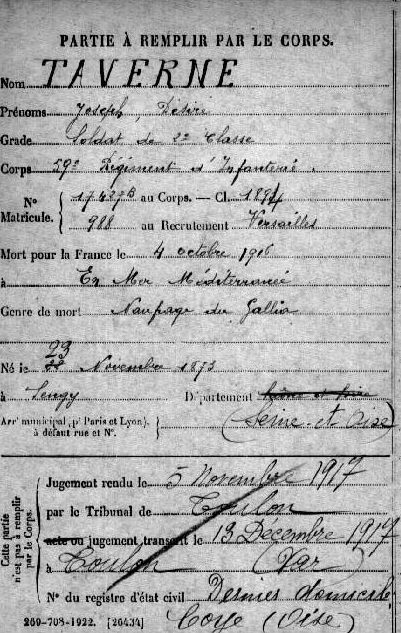 PARTIE À REMPLIR PAR LE CORPS.
Nom TAVERNE
Prénoms Joseph, Désiré
Grade Soldat de 2e Classe
Corps 59e Régiment d'Infanterie.
N° Matricule. { 17437B au Corps. — Cl. 1894
988 au Recrutement Versailles
Mort pour la France le 4 octobre 1916
à En Mer Méditerranée
Genre de mort Naufrage du Gallia
Né le 23 Novembre 1873
à Département
Arrt municipal (pr Paris et Lyon), à défaut rue et N°. { (Seine-et-Oise)
Cette partie n'est pas à remplir par le Corps.
Jugement rendu le 5 Novembre 1917
par le Tribunal de Toulon
acte ou jugement transcrit le 13 Décembre 1917
à Toulon (Var)
N° du registre d'état civil Dernier domicile
Coye (Oise)
269-708-1922. [26434]